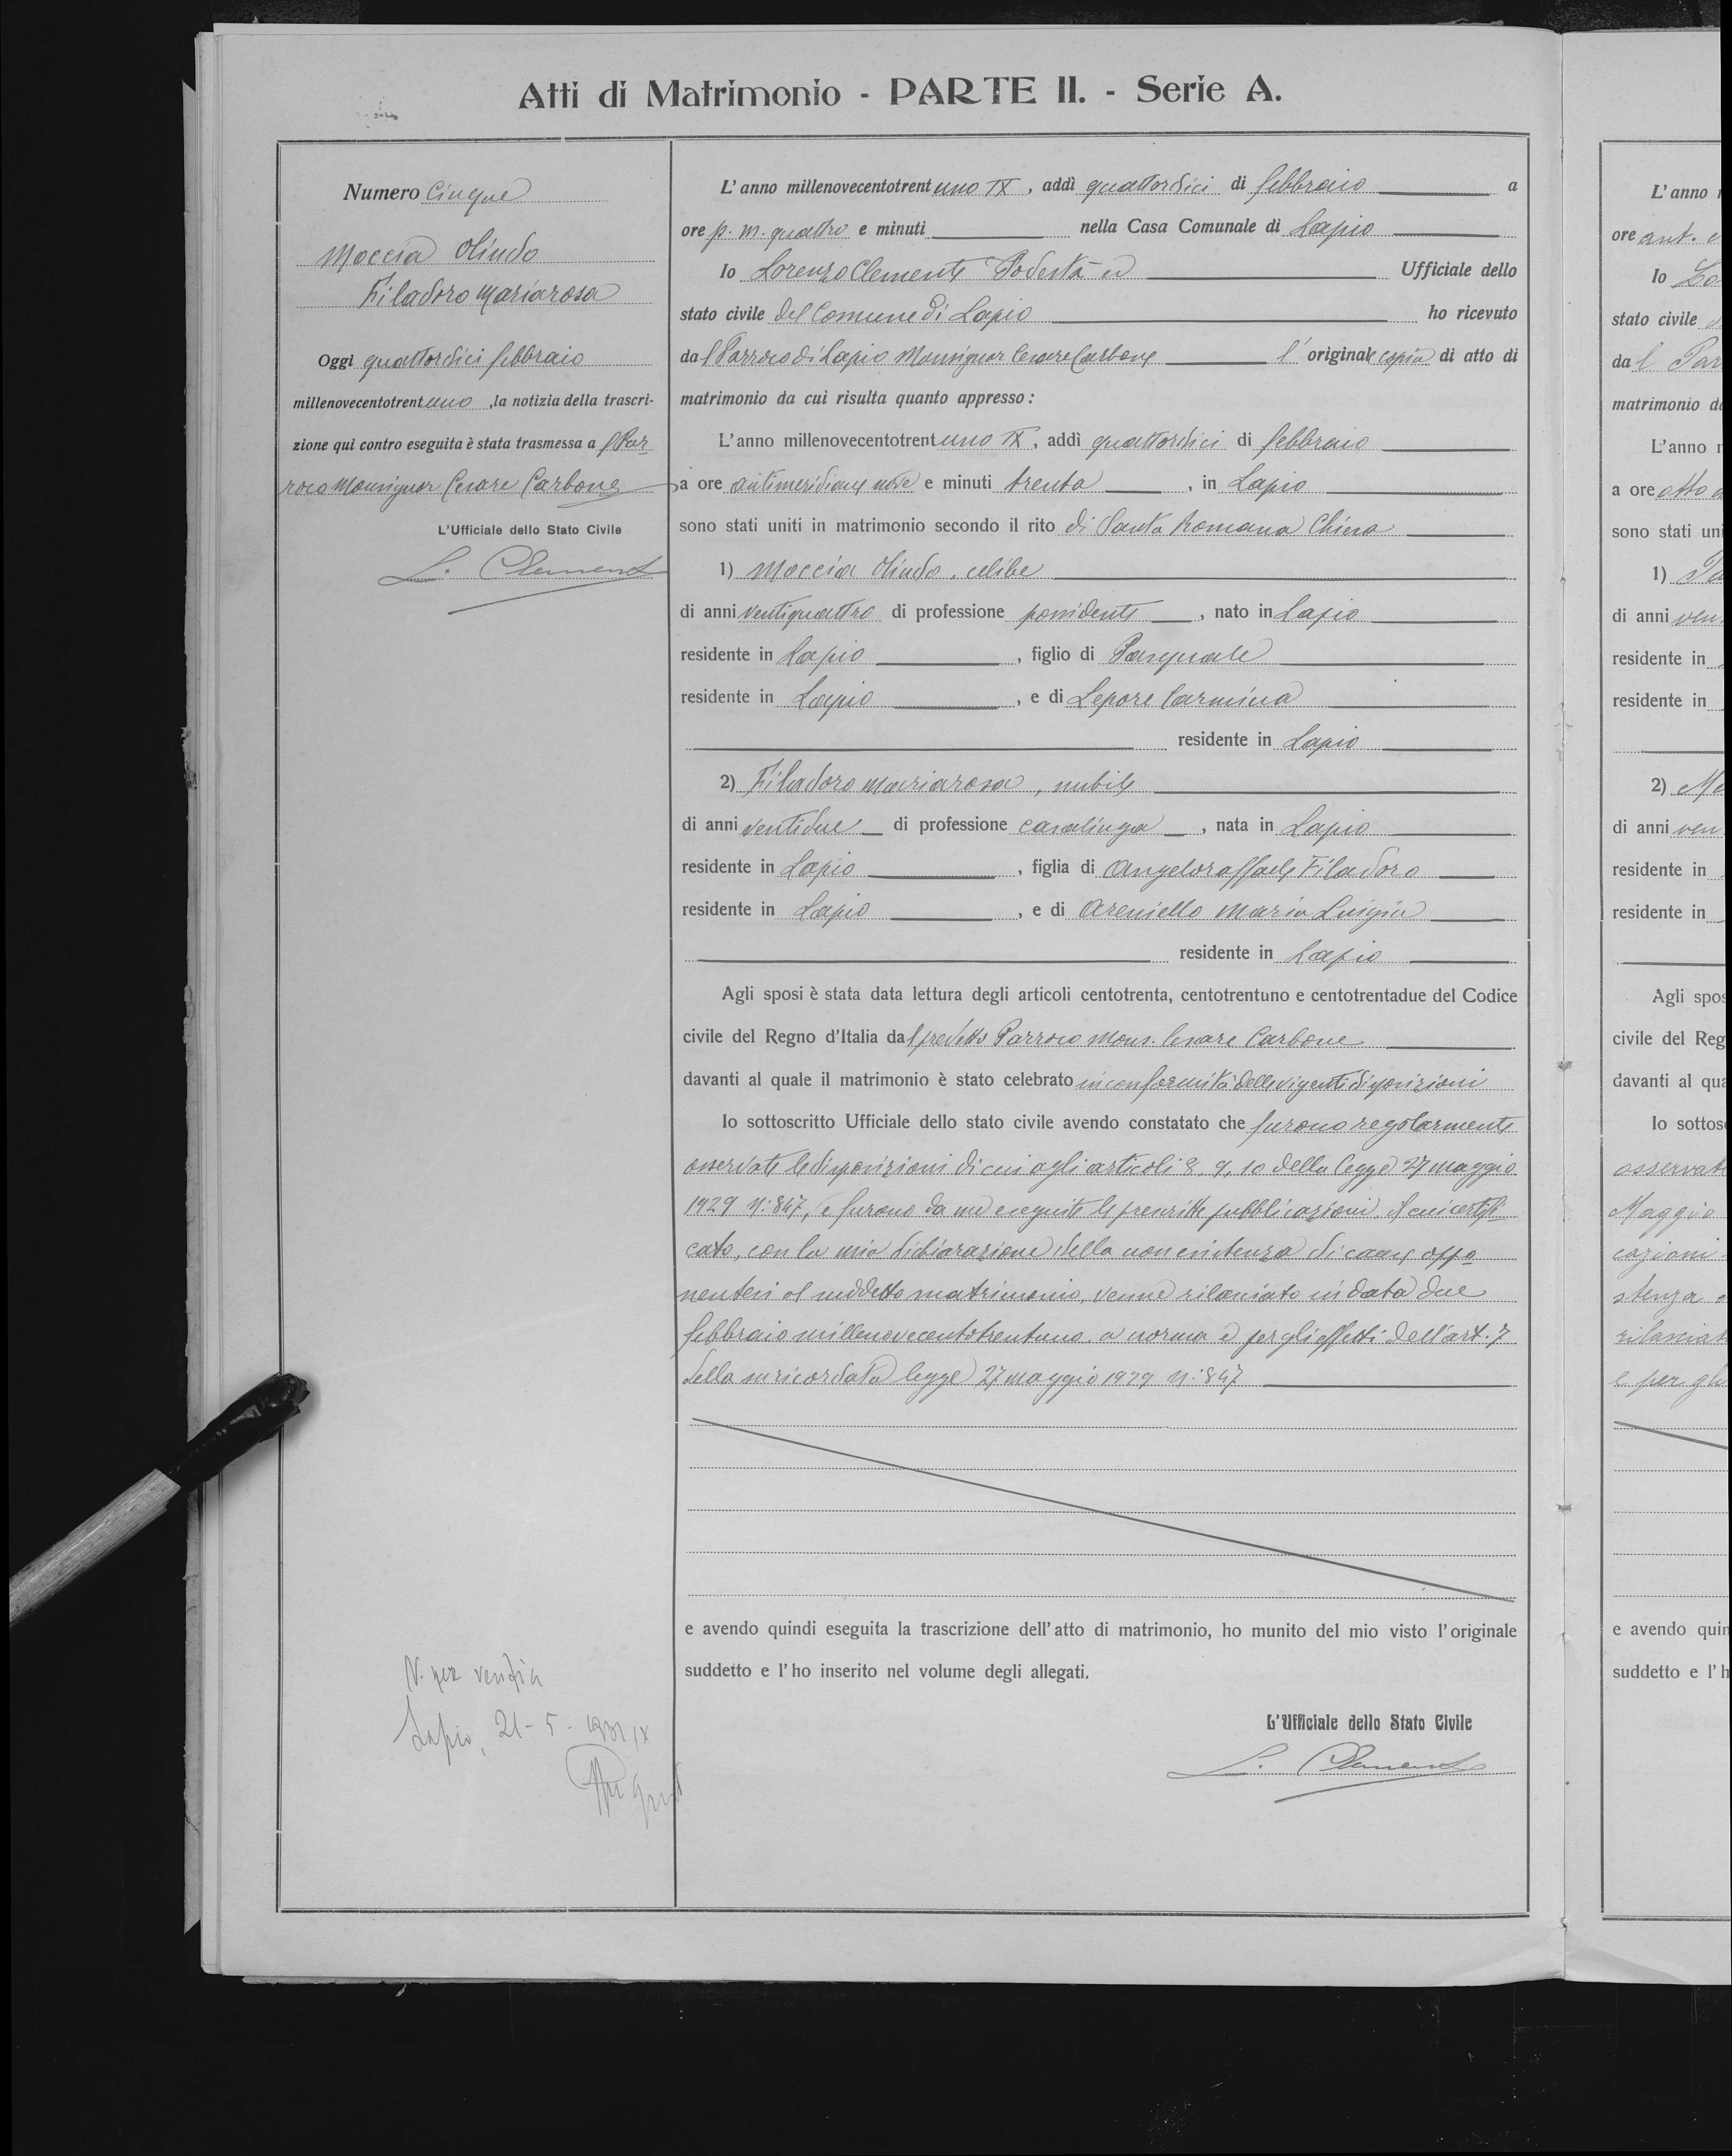 Atti di Matrimonio - PARTE II. - Serie A.
Numero Cinque
Moccia Olindo
Filadoro Mariarosa
Oggi quattordici febbraio
millenovecentotrentuno, la notizia della trascri-
zione qui contro eseguita è stata trasmessa a l Par
roco Monsignor Cesare Carbone
L'Ufficiale dello Stato Civile
L. Clemente
N. per verifica
Lapio, 21-5-1931 IX
L'anno millenovecentotrentuno IX, addì quattordici di febbraio a
ore p. m. quattro e minuti nella Casa Comunale di Lapio
Io Lorenzo Clemente Podestà ed Ufficiale dello
stato civile del Comune di Lapio ho ricevuto
dal Parroco di Lapio Monsignor Cesare Carbone l' originale copia di atto di
matrimonio da cui risulta quanto appresso:
L'anno millenovecentotrentuno IX, addì quattordici di febbraio
a ore antimeridiane nove e minuti trenta, in Lapio
sono stati uniti in matrimonio secondo il rito di Santa Romana Chiesa
1) Moccia Olindo, celibe
di anni ventiquattro di professione possidente, nato in Lapio
residente in Lapio, figlio di Pasquale
residente in Lapio, e di Lepore Carmina
residente in Lapio
2) Filadoro Mariarosa, nubile
di anni ventidue di professione casalinga, nata in Lapio
residente in Lapio, figlia di Angeloraffaele Filadoro
residente in Lapio, e di Areniello Maria Luigia
residente in Lapio
Agli sposi è stata data lettura degli articoli centotrenta, centotrentuno e centotrentadue del Codice
civile del Regno d'Italia dal predetto Parroco Mons. Cesare Carbone
davanti al quale il matrimonio è stato celebrato in conformità delle vigenti disposizioni
Io sottoscritto Ufficiale dello stato civile avendo constatato che furono regolarmente
osservate le disposizioni di cui agli articoli 8, 9, 10 della legge 27 maggio
1929 N: 847, e furono da me eseguite le prescritte pubblicazioni, il cui certifi-
cato, con la mia dichiarazione della non esistenza di cause oppo
nentesi al suddetto matrimonio, venne rilasciato in data due
febbraio millenovecentotrentuno, a norma e per gli effetti dell'art. 7
della su ricordata legge 27 maggio 1929 N: 847
e avendo quindi eseguita la trascrizione dell'atto di matrimonio, ho munito del mio visto l'originale
suddetto e l'ho inserito nel volume degli allegati.
L'Ufficiale dello Stato Civile
L. Clemente
L'anno
ore ant.
Io
stato civile
dal Par
matrimonio
L'anno
a ore otto
sono stati uni
1)
di anni ven
residente in
residente in
2)
di anni ven
residente in
residente in
Agli spos
civile del Reg
davanti al qua
Io sottos
osservat
Maggio
cazioni
stenza
rilasciat
e per gli
e avendo quin
suddetto e l'h